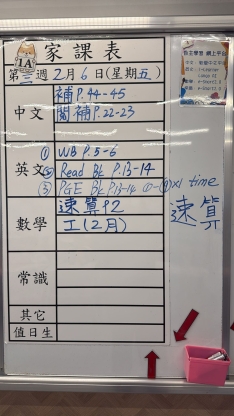 家課表
1A
第三週2月6日(星期五)
中文
補 P.44-45
閱補 P.22-23
英文
① WB P.5-6
② Read Bk P.13-14
③ PGE Bk P.13-14 ①-④ x1 time
數學
速算 P2
工(2月)
速算
常識
其它
值日生
自主學習 網上平台